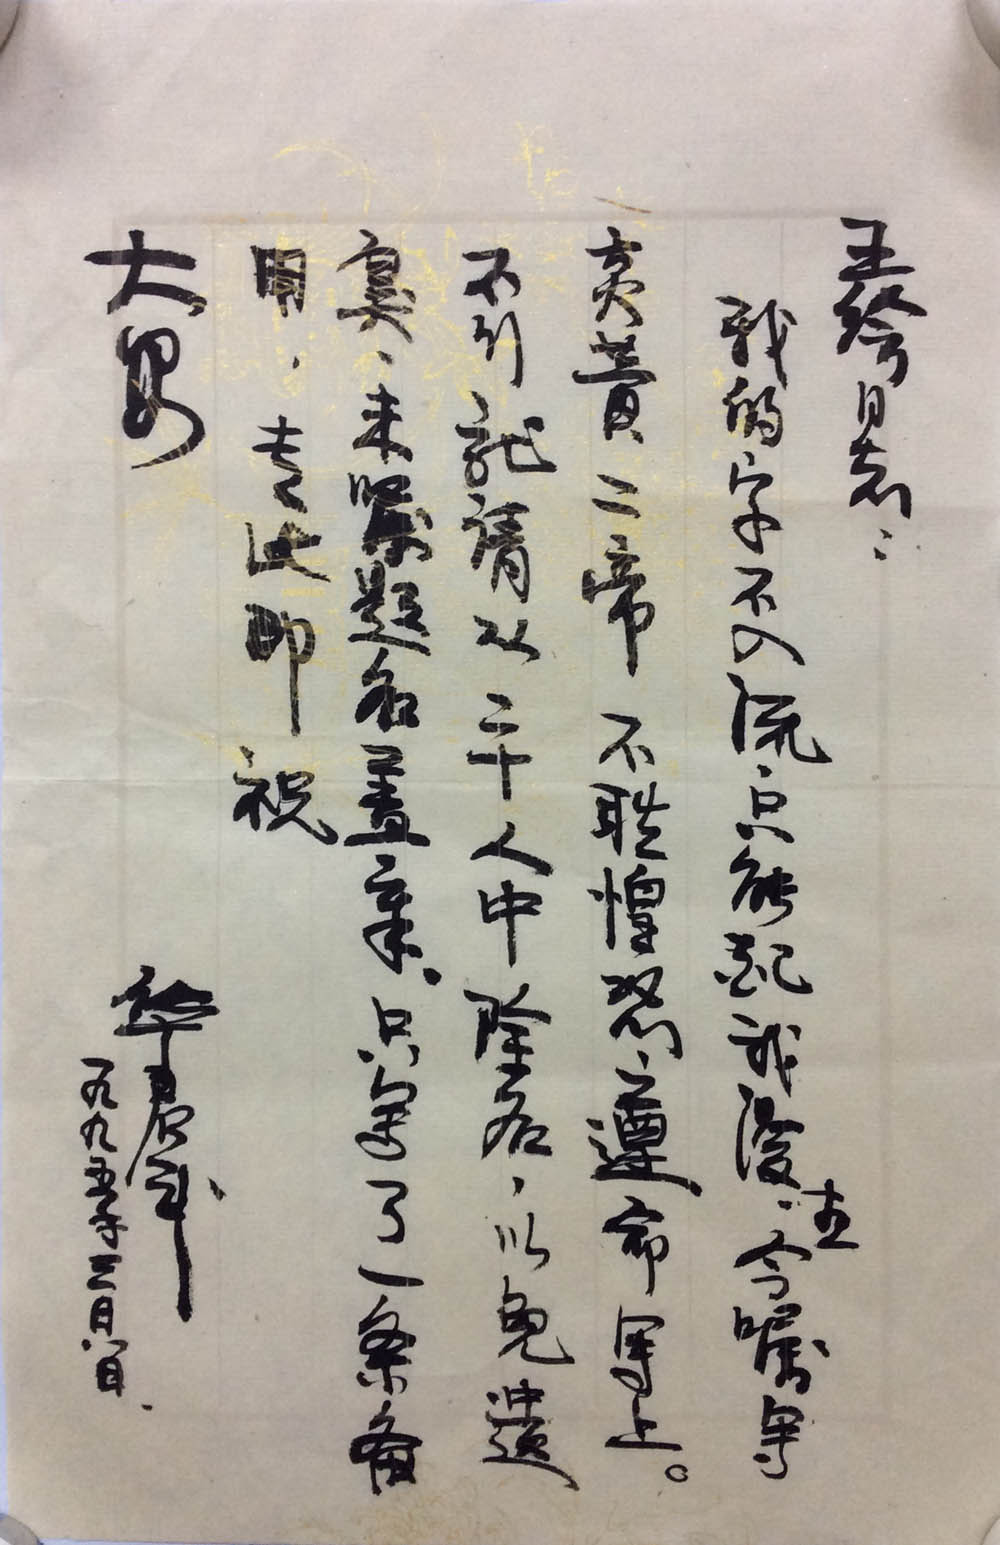 王 同志：
我的字不入流、只能 今嘱写
炎黄二帝 不胜惶恐、遵命写上。
不行就请从二十人中除名、以免遗
臭、来嘱题名盖章。只写了一条备
用、专此即祝
大安
华君武
一九九五年三月八日.